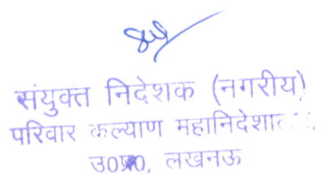 संयुक्त निदेशक (नगरीय)
परिवार कल्याण महानिदेशालय,
उ०प्र०, लखनऊ